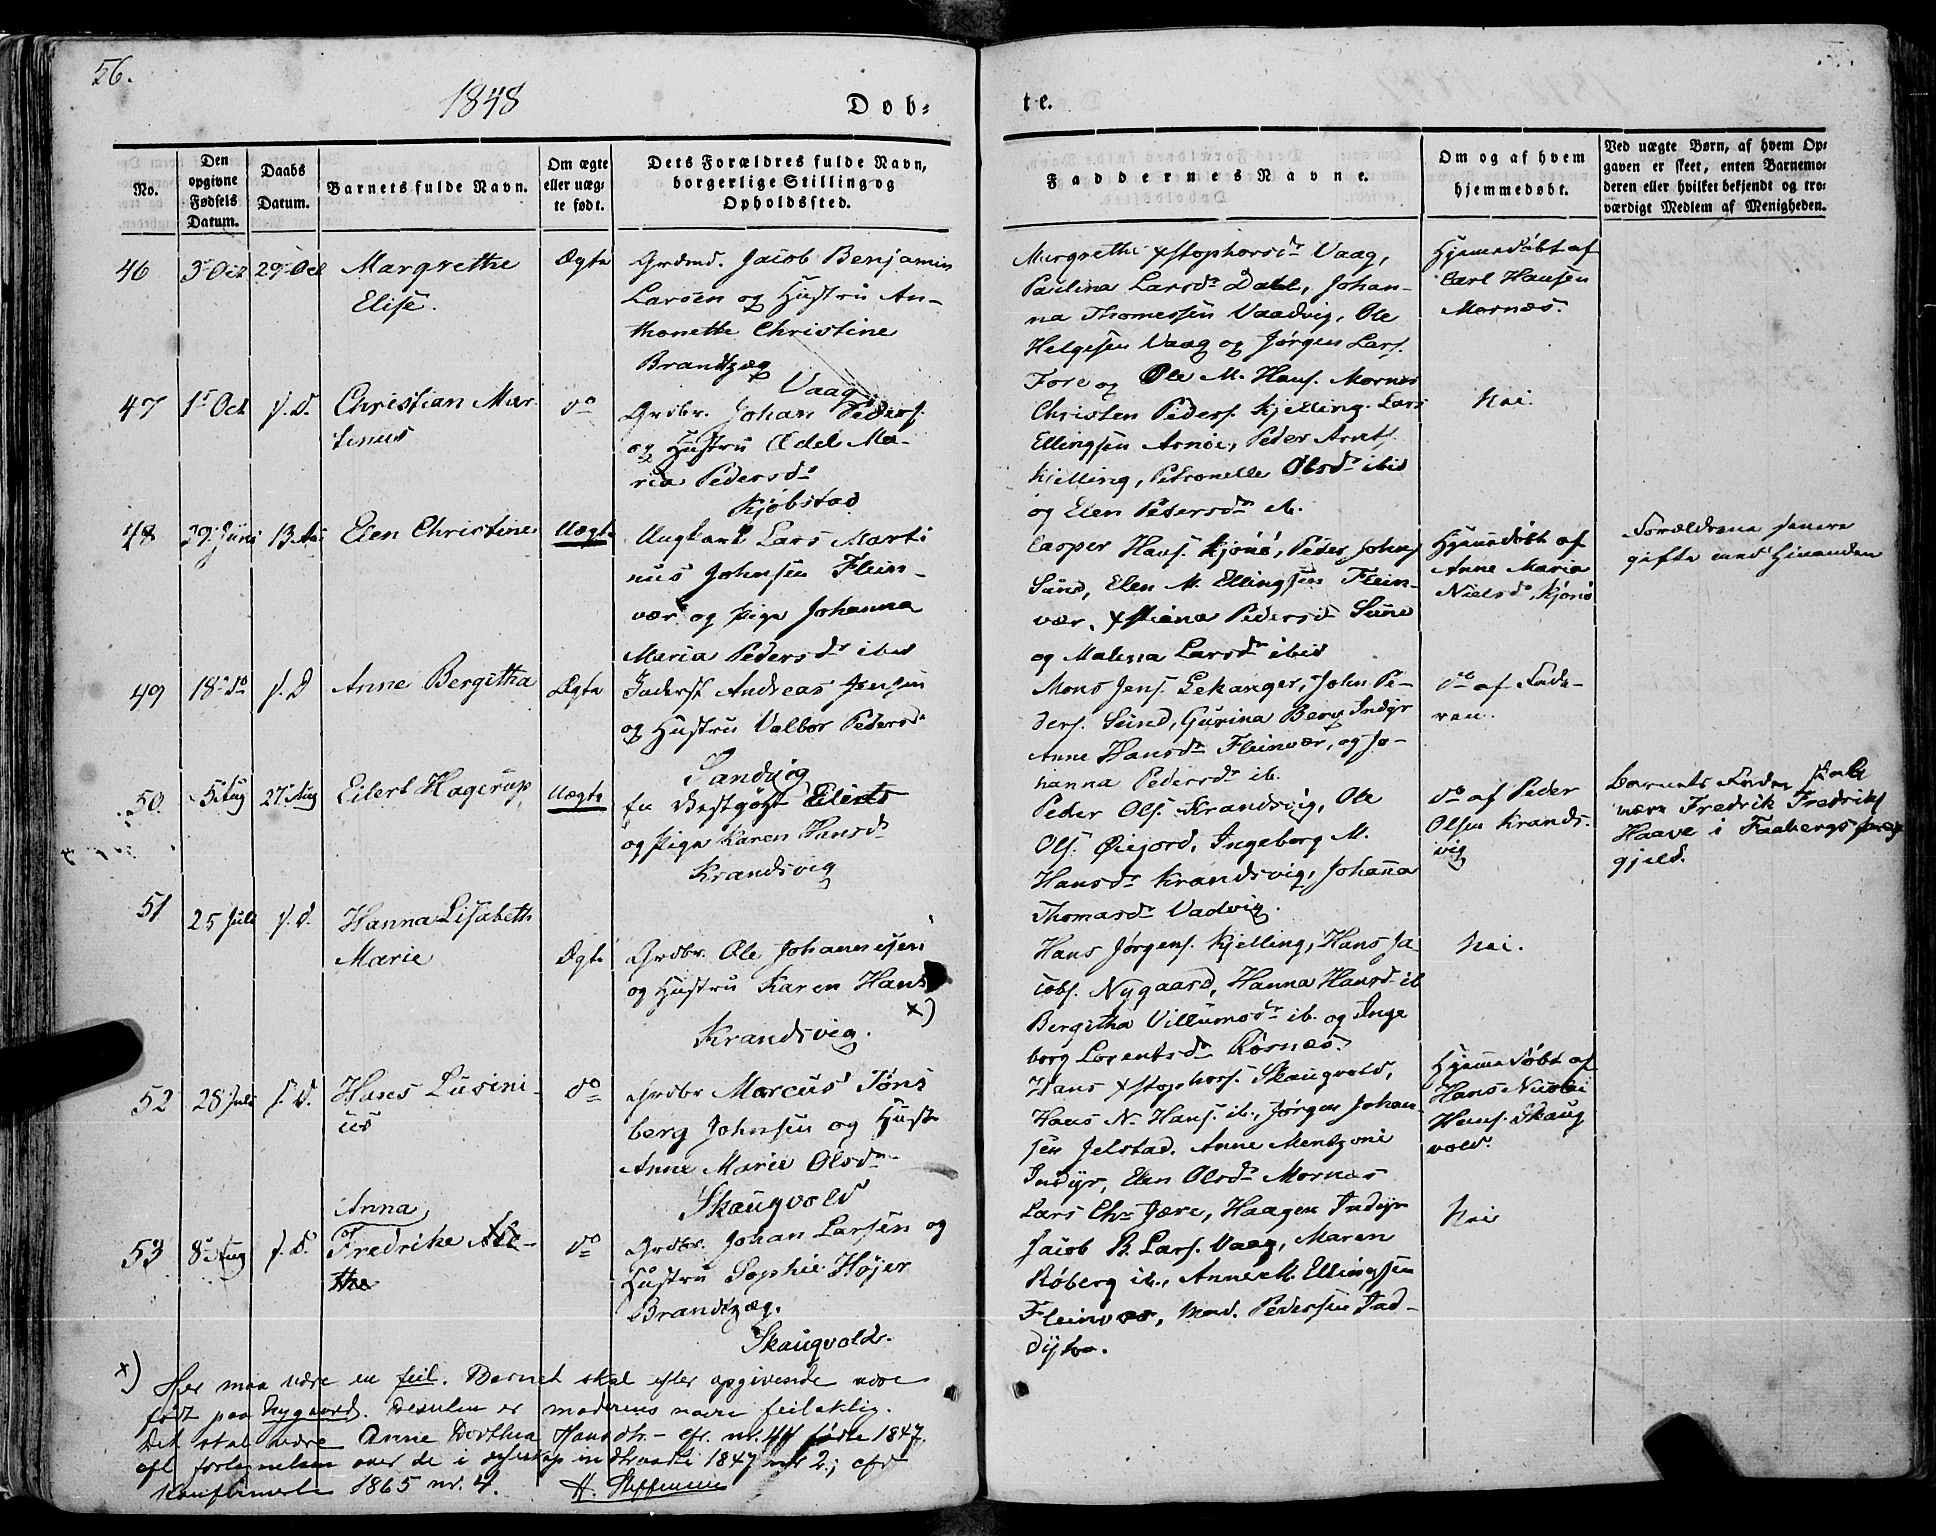 56.
1848
Døb-
te.
No.
Den
opgivne
Fødsels
Datum.
Daabs
Datum.
Barnets fulde Navn.
Om ægte
eller uæg-
te født.
Dets Forældres fulde Navn,
borgerlige Stilling og
Opholdssted.
Faddernes Navne.
Om og af hvem
hjemmedøbt.
Ved uægte Børn, af hvem Op-
gaven er skeet, enten Barnemo-
deren eller hvilket bekjendt og tro-
værdigt Medlem af Menigheden.
46 3 Oct 29 Oct
Margrethe
Elise.
Ægte
Grdmd. Jacob Benjamin
Larsen og Hustru An-
thonette Christine
Brandtzæg
Vaag
Margrethe Xstophersdr Vaag,
Paulina Larsdr Dahl, Johan-
na Thomessen Vaadvig, Ole
Helgesen Vaag og Jørgen Lars.
Fore og Ole M. Hans. Mornes
Hjemmedøbt af
Carl Hansen
Mornæs.
47 1 Oct s.D.
Christian Mar-
tinus
do
Grdbr. Johan Peders.
og Hustru Edel Ma-
ria Pedersdr
Kjøbstad
Christen Peders. Kjelling. Lars
Ellingsen Arnøe, Peder Arnts.
Kjelling, Petronelle Olsdr ibid
og Elen Pedersdr ib.
Nei.
48 29 Juni 13 Au
Elen Christine
Uægte
Ungkarl Lars Marti
nus Johnsen Flein-
vær og Pige Johanna
Maria Pedersdr ibid
Casper Hans. Kjønø, Peder Johns.
Sund, Elen M. Ellingsen Flein-
vær, Xstiana Pedersd Sund
og Malena Larsdr ibid
Hjemmedøbt af
Anne Maria
Nielsdr Kjønø
Forældrene senere
gifte med hinanden
49 18 do s.D
Anne Bergitha
Ægte
Inderst Andreas Jensen
og Hustru Valbor Pedersdr
Sandvig
Mons Jens. Lekanger, John Pe-
ders. Sund, Gurina Berg Indyr
Anne Hansdr Fleinvær, og Jo-
hanna Pedersdr ib.
do af Fade-
ren.
50. 5 Aug 27 Aug
Eilert Hagerup
Uægte
og Pige Karen Hansdr
Krandsvig
Peder Ols. Krandsvig, Ole
Ols. Øiejord, Ingeborg M.
Hansdr Krandsvig, Johanna
Thomasdr Vadvig.
do af Peder
Olsen Krands-
vig
Barnets Fader skal
være Fredrik Fredriks.
Haave i Faabergs Præste
gjeld.
51 25 Juli s.D.
Hanna Lisabeth
Marie
Ægte
Grdbr. Ole Johannesen
og Hustru Karen Hans
x)
Krandsvig.
Hans Jørgens. Kjelling, Hans Ja
cobs. Nygaard, Hanna Hansd ib
Bergitha Villumsdr ib. og Inge
borg Lorentsdr Rørnæs.
Nei.
52 28 Juli s.D.
Hans Lusini-
us
do
Grdbr Marcus Tøns
berg Johnsen og Hust
Anne Marie Olsdr
Skaugvold
Hans Xstophers. Skaugvold,
Hans N. Hans. ib., Jørgen Johan-
sen Jelstad. Anne Mentzoni
Indyr, Elen Olsdr Mornæs
Hjemmedøbt af
Hans Nicolai
Hans. Skaug
vold.
53 8 Aug s.D.
Anna
Fredrike Ale-
the
do
Grdbr. Johan Larsen og
Hustru Sophie Høier
Brandtzæg.
Skaugvold.
Lars Chr Jære, Haagen Indyr
Jacob B. Lars. Vaag, Maren
Røberg ib., Anne M. Ellingsen
Fleinvær, Mad. Pedersen Ind-
dyhr.
Nei
x) Her maa være en feil. Barnet skal efter opgivende være
født paa Nygaard. Desuden er moderens navn feilaktig.
Det skal være Anne Dorthea Hansdtr. - cfr. nr. 44 fødte 1847.
1847 nr 2; cfr
konfirmerte 1865 nr. 4. H. Steffensen